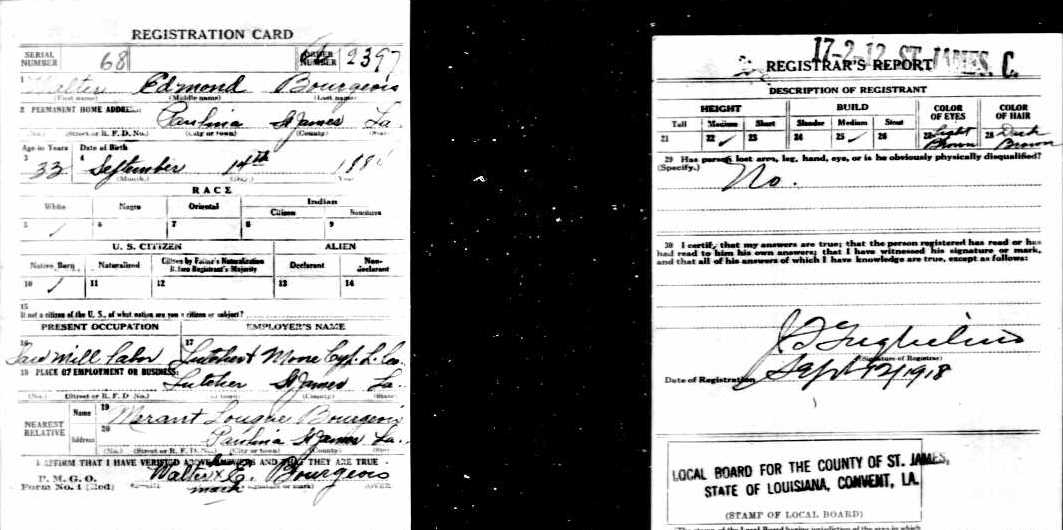 REGISTRATION CARD
SERIAL NUMBER 68 ORDER NUMBER 2397
1 Walter Edmond Bourgeois
(First name) (Middle name) (Last name)
2 PERMANENT HOME ADDRESS:
Paulina St James La.
(No.) (Street or R. F. D. No.) (City or town) (County)
Age in Years Date of Birth
3 33 4 September 14th 188
(Month.) (Day.) Year
RACE
White Negro Oriental Indian
Citizen Noncitizen
5 ✓ 6 7 8 9
U. S. CITIZEN ALIEN
Native Born Naturalized Citizen by Father's Naturalization Before Registrant's Majority Declarant Non-declarant
10 ✓ 11 12 13 14
15
If not a citizen of the U. S., of what nation are you a citizen or subject?
PRESENT OCCUPATION EMPLOYER'S NAME
16 Saw Mill Labor 17 Lutcher & Moore Cyp. L. Co.
18 PLACE OF EMPLOYMENT OR BUSINESS:
Lutcher St James La.
(No.) (Street or R. F. D. No.) (County) (State)
NEAREST RELATIVE Name 19 Bourgeois
Address 20 Paulina St James La.
(No.) (Street or R. F. D. No.) (City or town) (County) (State)
I AFFIRM THAT I HAVE VERIFIED ABOVE ANSWERS AND THAT THEY ARE TRUE
P. M. G. O.
Form No. 1 (Red)
Walter x E. Bourgeois
mark
(Signature or mark) (OVER)
17-2-12 ST. JAMES. C.
REGISTRAR'S REPORT
DESCRIPTION OF REGISTRANT
HEIGHT BUILD COLOR OF EYES COLOR OF HAIR
Tall Medium Short Slender Medium Stout
21 22 ✓ 23 24 25 ✓ 26 27 Light Brown 28 Dark Brown
29 Has person lost arm, leg, hand, eye, or is he obviously physically disqualified?
(Specify.) No.
30 I certify that my answers are true; that the person registered has read or has
had read to him his own answers; that I have witnessed his signature or mark,
and that all of his answers of which I have knowledge are true, except as follows:
(Signature of Registrar)
Date of Registration Sept 12/1918
LOCAL BOARD FOR THE COUNTY OF ST. JAMES,
STATE OF LOUISIANA, CONVENT, LA.
(STAMP OF LOCAL BOARD)